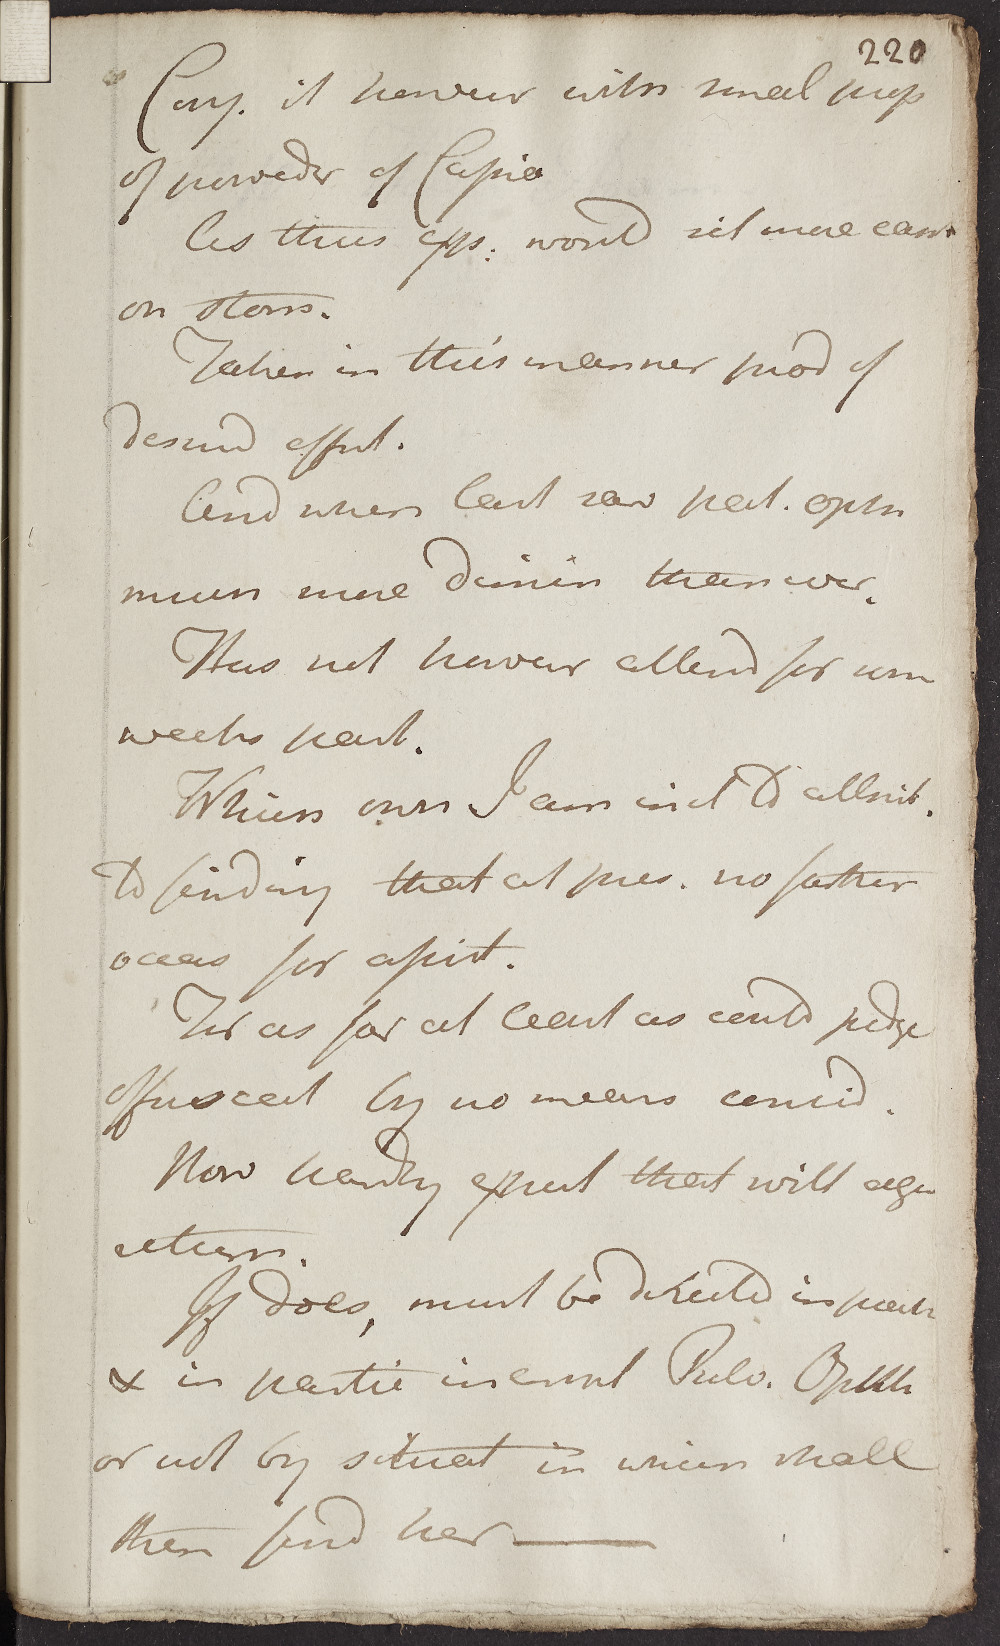 220
Conj. it howevr with small prop
of powder of Cassia
As thus exps: would sit more easi
on stom.
Taken in this manner prod of
desird effect.
And when last saw pat. opth
much more dimin than ever.
Has not howevr attend for som
weeks past.
Which own I am incl to attrib.
to finding that at pres. no farther
occas for assist.
For as far at least as could judge
offuscat by no means consid.
Now hardly expect that will again
return.
If does, must be directed in pract
& in partic in empl Pulv. Ophth
or not by situat in which shall
then find her